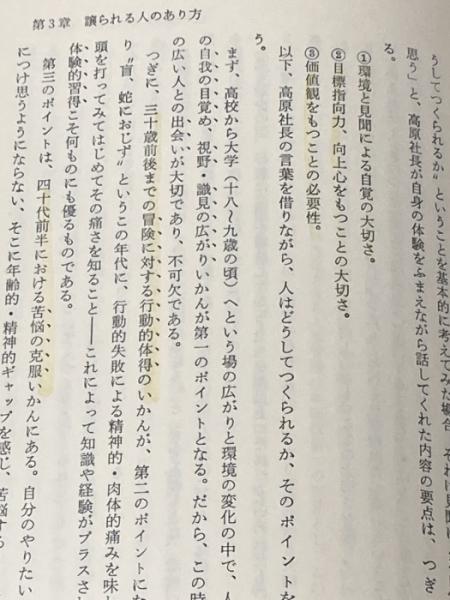 第3章　譲られる人のあり方
うしてつくられるか〟ということを基本的に考えてみた場合、それは見聞
思う」と、高原社長が自身の体験をふまえながら話してくれた内容の要点は、つぎ
る。
①環境と見聞による自覚の大切さ。
②目標指向力、向上心をもつことの大切さ。
③価値観をもつことの必要性。
以下、高原社長の言葉を借りながら、人はどうしてつくられるか、そのポイントを
う。
まず、高校から大学（十八〜九歳の頃）へという場の広がりと環境の変化の中で、人
の自我の目覚め、視野・識見の広がりいかんが第一のポイントとなる。だから、この時
の広い人との出会いが大切であり、不可欠である。
つぎに、三十歳前後までの冒険に対する行動的体得のいかんが、第二のポイントにな
り〝盲、蛇におじず〟というこの年代に、行動的失敗による精神的・肉体的痛みを味
頭を打ってみてはじめてその痛さを知ること――これによって知識や経験がプラスさ
体験的習得こそ何ものにも優るものである。
第三のポイントは、四十代前半における苦悩の克服いかんにある。自分のやりたい
につけ思うようにならない、そこに年齢的・精神的ギャップを感じ、苦悩する